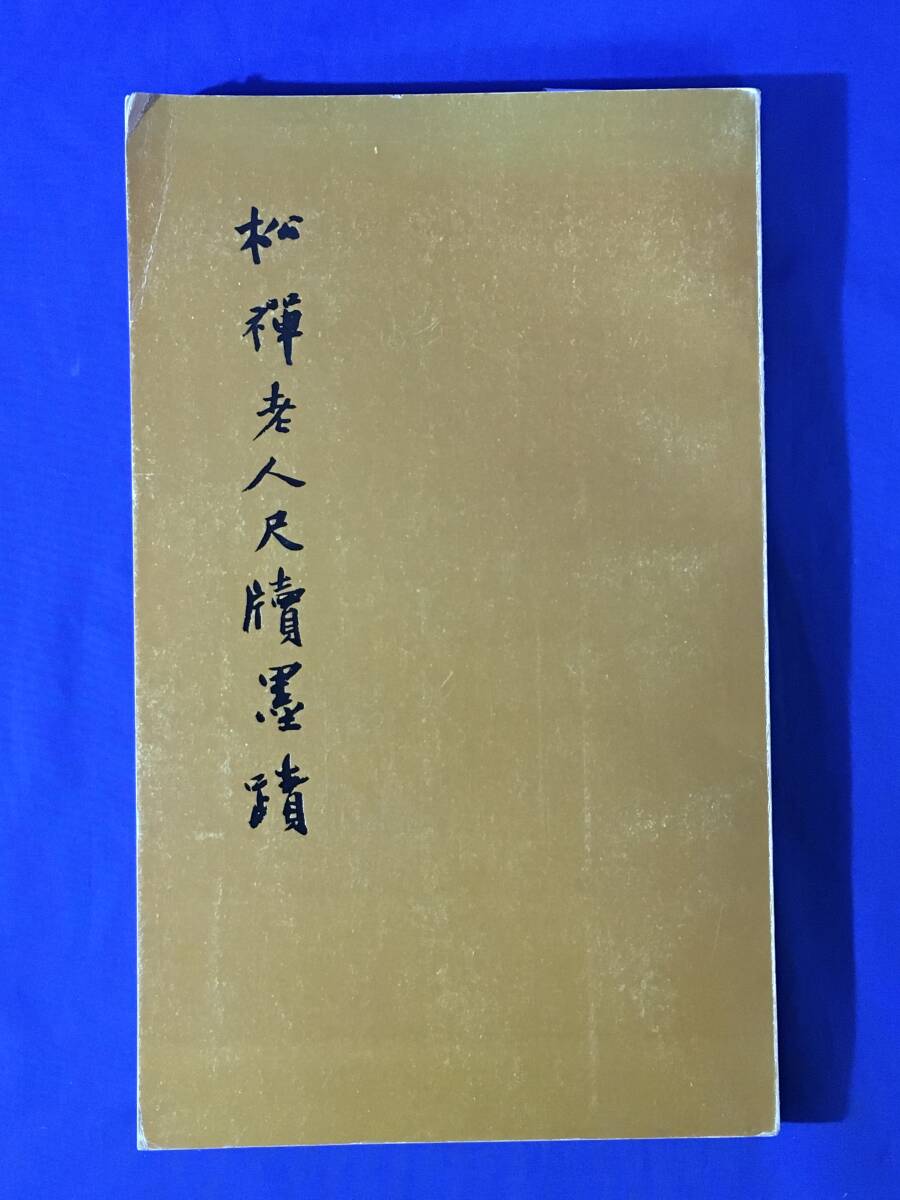 松禪老人尺牘墨蹟